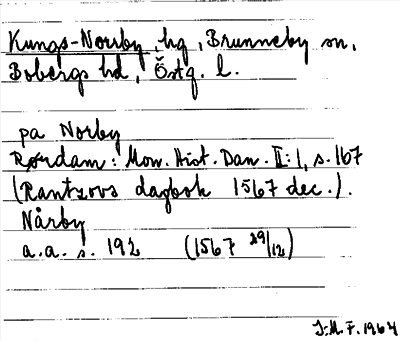 Kungs-Norrby, hg, Brunneby sn,
Bobergs hd, Östg. l.
pa Norby
Rørdam: Mon. Hist. Dan. II:1, s. 167
(Rantzovs dagbok 1567 dec.).
Nårby
a.a. s. 192 (1567 29/12)
J.M.F. 1964